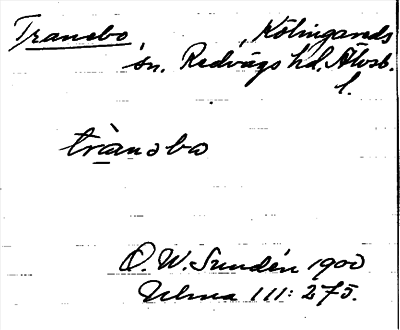 Tranebo Kölingareds
sn. Redvägs hd. Älvsb.
l.
trànəbo
O. W. Sundén 1900
Ulma 111: 275.